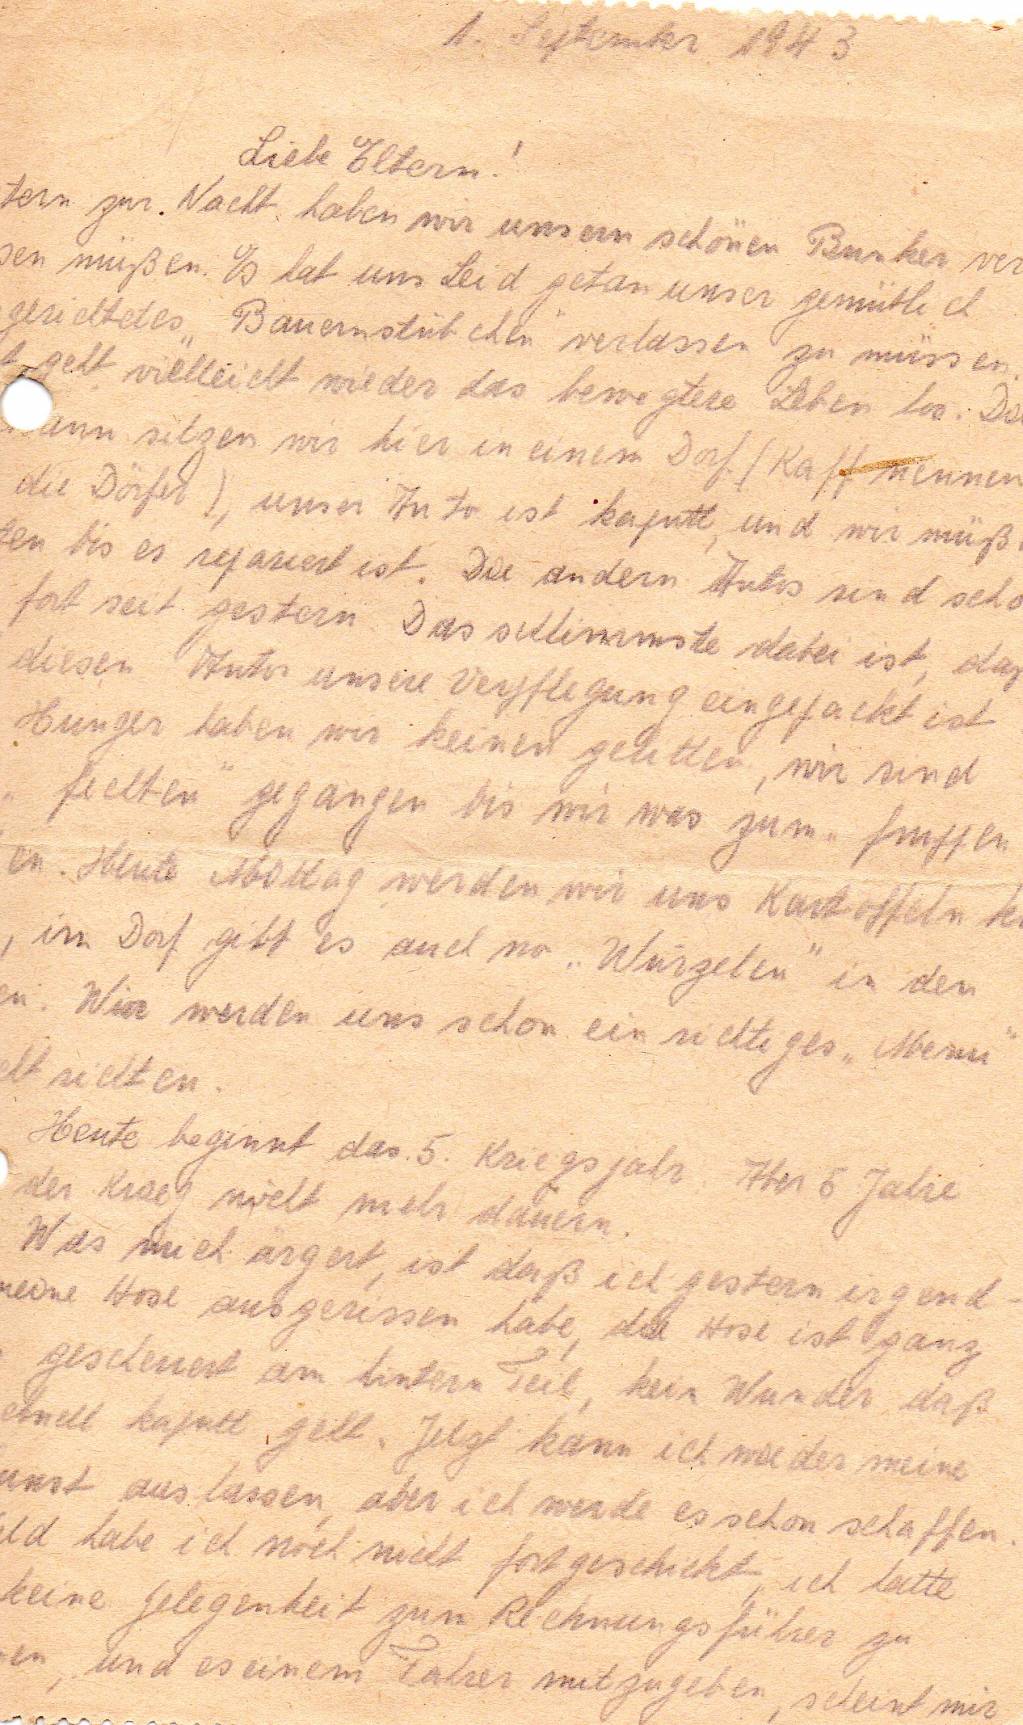 1. September 1943
Liebe Eltern!
tern zur Nacht haben wir unsern schönen Bunker ver
sen müßen. Es hat uns Leid getan unser gemütlich
gerichtetes "Bauernstübchen" verlassen zu müssen.
t geht vielleicht wieder das bewegtere Leben los.
ann sitzen wir hier in einem Dorf (Kaff nennen
die Dörfer), unser Auto ist kaputt, und wir müß
ten bis es repariert ist. Die andern Autos sind scho
fort seit gestern. Das schlimmste dabei ist, daß
diesen Autos unsere Verpflegung eingepackt ist
Hunger haben wir keinen gelitten, wir sind
"fechten" gegangen bis wir was zum
en. Heute Mittag werden wir uns Kartoffeln
, im Dorf gibt es auch so "Wurzelen" in den
en. Wir werden uns schon ein richtiges "Menü"
richten.
Heute beginnt das 5. Kriegsjahr. Aber 5 Jahre
der Krieg nicht mehr dauern.
Was mich ärgert, ist daß ich gestern irgend-
meine Hose ausgerissen habe, die Hose ist ganz
gescheuert am hintern Teil, kein Wunder daß
schnell kaputt geht. Jetzt kann ich wieder meine
unst auslassen, aber ich werde es schon schaffen.
eld habe ich noch nicht fortgeschickt, ich hatte
keine Gelegenheit zum Rechnungsführer zu
en, und es einem Fahrer mitzugeben, scheint mir